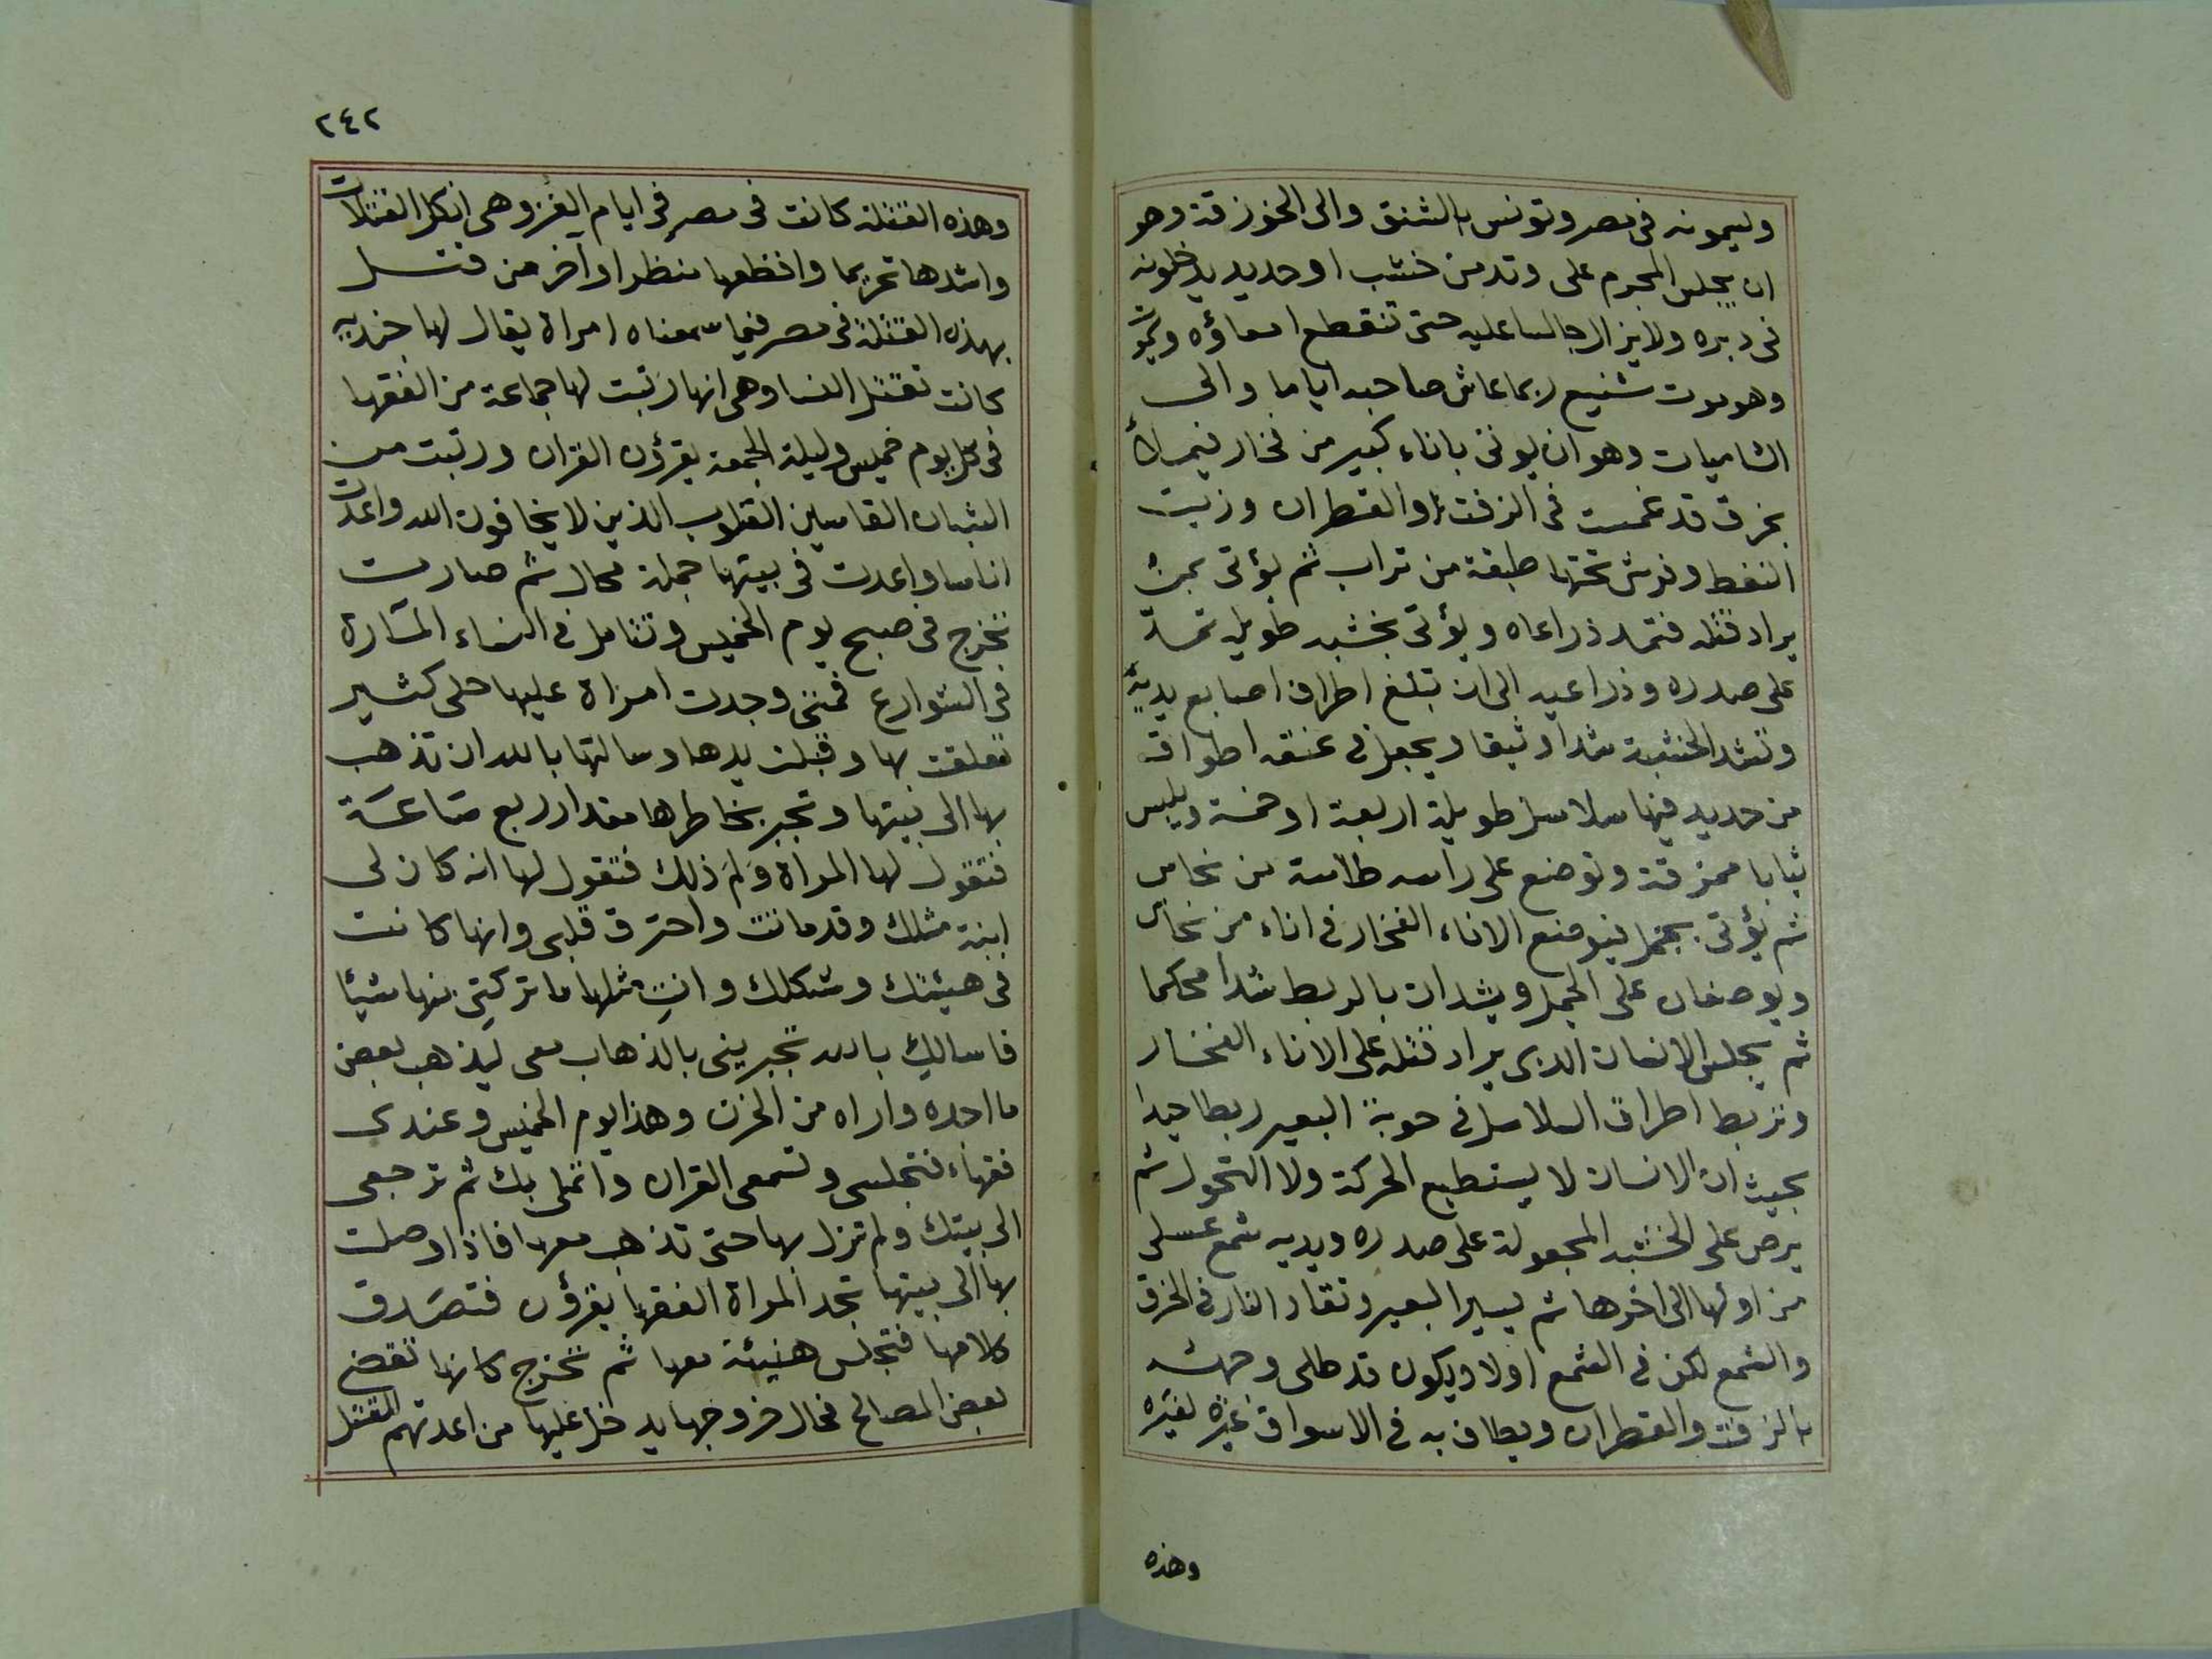 وليمونه فى مصر وتونس بالشنق والى الخوزقة وهو
ان يجلس المجرم على وتد من خشب او حديد يدخلونه
فى دبره ولا يزال جالسا عليه حتى تنقطع امعاؤه ويموت
وهو موت شنيع ربما عاش صاحبه اياما والى
الشاميات وهو ان يوتى باناء كبير من فخار فيملأ
بخرق قد غمست فى الزفت او القطران وزيت
النفط وفرش تحتها طبقة من تراب ثم يؤتى بمن
يراد قتله فتمد ذراعاه ويؤتى بخشبه طويله تمد
على صدره وذراعيه الى ان تبلغ اطراف اصابع يديه
وتشد الخشبة شدا وثيقا ويجعل فى عنقه اطواق
من حديد فيها سلاسل طويلة اربعة او خمسة ويلبس
ثيابا ممزقة وتوضع على راسه طاسة من نحاس
ثم يؤتى بجمل فيوضع الاناء الفخار فى اناء من نحاس
ويوضعان على الجمل ويشدان بالربط شدا محكما
ثم يجلس الانسان الدى يراد قتله على الاناء الفخار
وتربط اطراف السلاسل فى حوية البعير ربطا جيدا
بحيث ان الانسان لا يستطيع الحركة ولا التحول ثم
يرص على الخشبه المجعولة على صدره ويديه شمع عسلى
من اولها الى اخرها ثم يسير البعير وتقاد النار فى الخرق
والشمع لكن فى الشمع اولا ويكون قد طلى وجهه
بالزفت والقطران ويطاف به فى الاسواق عبرة لغيره
وهذه
٢٤٢
وهذه القتلة كانت فى مصر فى ايام الغز وهى انكل القتلات
واشدها تحريما وافظعها منظرا واخر من قتل
بهذه القتلة فى مصر فيما سمعناه امراة يقال لها جنديه
كانت تقتل النسا وهى انها رتبت لها جماعة من الفقها
فى كل يوم خميس وليلة الجمعة يقرؤن القران ورتبت من
الشبان القاسين القلوب الذين لا يخافون الله واعدت
اناسا واعدت فى بيتها جملة محال ثم صارت
تخرج فى صبح يوم الخميس وتتامل فى النساء المارة
فى الشوارع فمتى وجدت امراة عليها حلى كثير
تعلقت بها وقبلت يدها وسالتها بالله ان تذهب
بها الى بيتها وتجبر بخاطرها مقدار ربع ساعة
فتقول لها المراة ولم ذلك فتقول لها انه كان لى
ابنة مثلك وقد ماتت واحترق قلبى وانها كانت
فى هيئتك وشكلك وانت مثلها ما تركتى منها شيئا
فاسالك بالله تجبرينى بالذهاب معى ليذهب بعض
ما اجده واراه من الحزن وهذا يوم الخميس وعندى
فقهاء فتجلسى وتسمعى القران واتملى بك ثم ترجعى
الى بيتك ولم تزل بها حتى تذهب معها فاذا وصلت
بها الى بيتها تجد المراة الفقها يقرؤن فتصدق
كلامها فتجلس هنيئة معها ثم تخرج كانها تقضى
بعض المصالح فحال خروجها يدخل عليها من اعدتهم للقتل